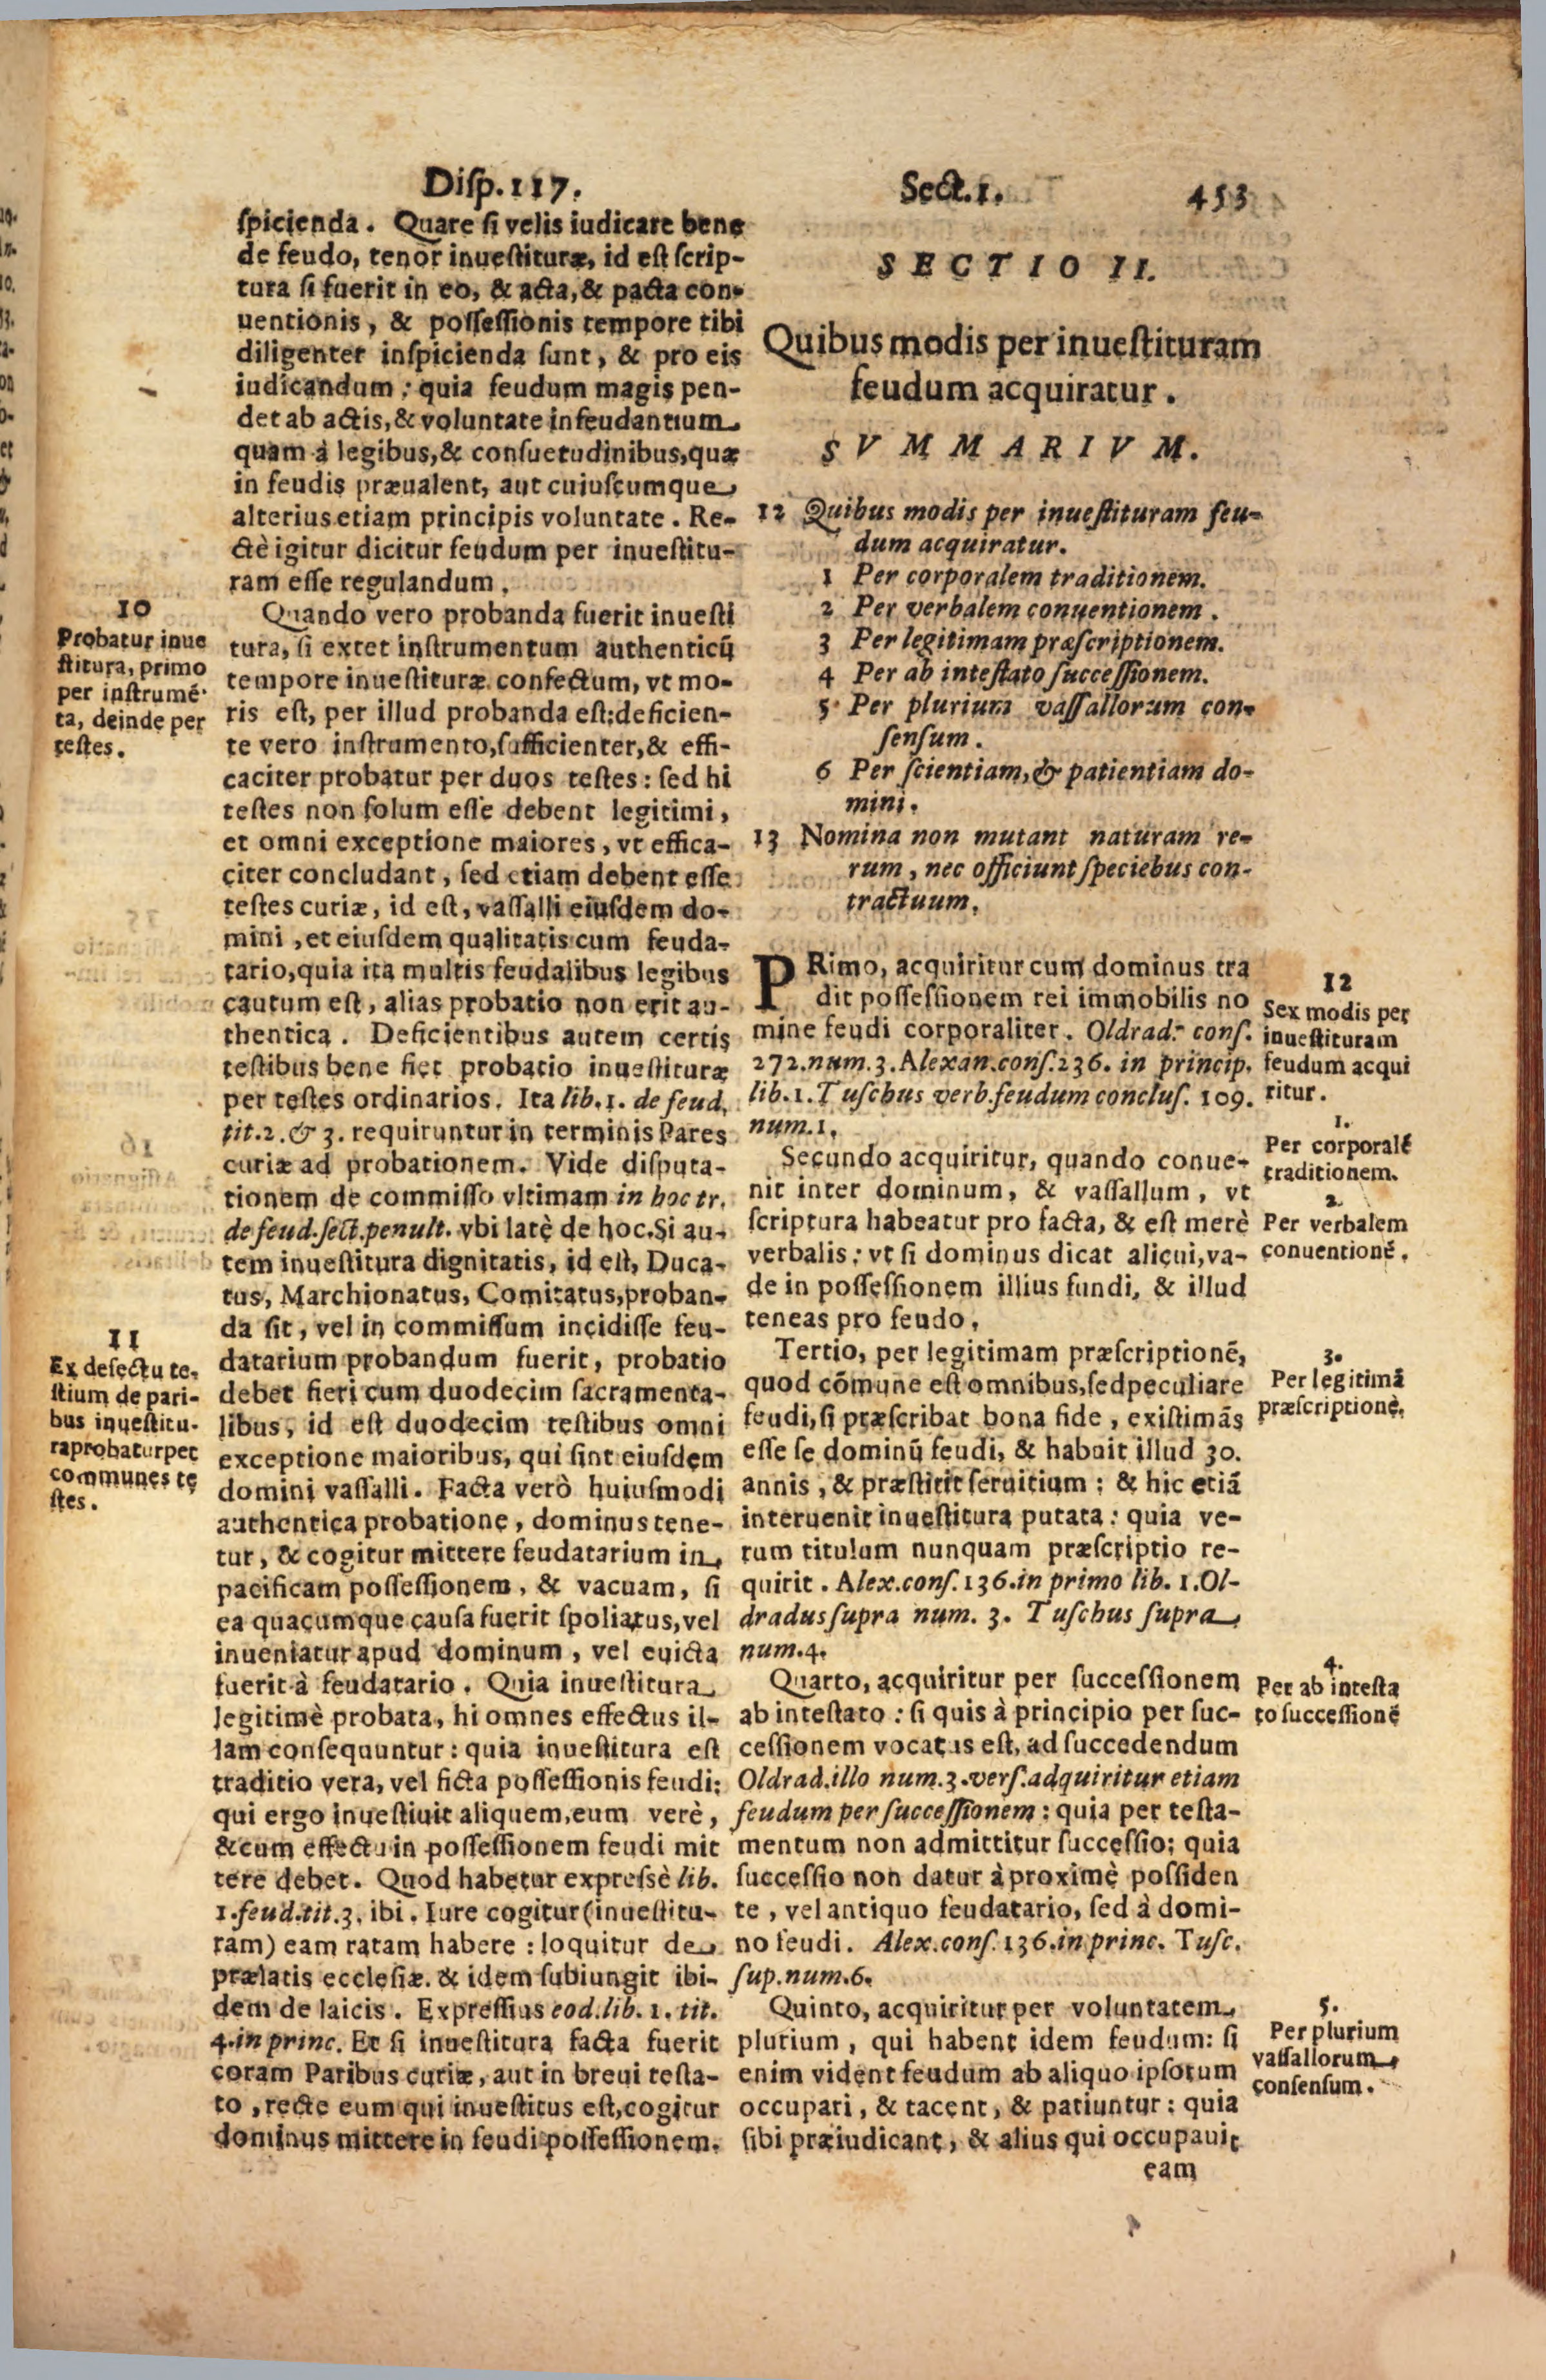 Disp. 117. Sect. 1. 453
spicienda. Quare si velis iudicare bene
de feudo, tenor inuestituræ, id est scrip-
tura si fuerit in eo, & acta, & pacta con-
uentionis, & possessionis tempore tibi
diligenter inspicienda sunt, & pro eis
iudicandum: quia feudum magis pen-
det ab actis, & voluntate infeudantium
quam à legibus, & consuetudinibus, quæ
in feudis præualent, aut cuiuscumque
alterius etiam principis voluntate. Re-
ctè igitur dicitur feudum per inuestitu-
ram esse regulandum.
10
Probatur inue
stitura, primo
per instrumē-
ta, deinde per
testes.
Quando vero probanda fuerit inuesti
tura, si extet instrumentum authenticū
tempore inuestituræ confectum, vt mo-
ris est, per illud probanda est: deficien-
te vero instrumento, sufficienter, & effi-
caciter probatur per duos testes: sed hi
testes non solum esse debent legitimi,
et omni exceptione maiores, vt effica-
citer concludant, sed etiam debent esse
testes curiæ, id est, vassalli eiusdem do-
mini, et eiusdem qualitatis cum feuda-
tario, quia ita multis feudalibus legibus
cautum est, alias probatio non erit au-
thentica. Deficientibus autem certis
testibus bene fiet probatio inuestituræ
per testes ordinarios. Ita lib. 1. de feud.
tit. 2. & 3. requiruntur in terminis Pares
curiæ ad probationem. Vide disputa-
tionem de commisso vltimam in hoc tr.
de feud. sect. penult. vbi latè de hoc. Si au-
tem inuestitura dignitatis, id est, Duca-
tus, Marchionatus, Comitatus, proban-
da sit, vel in commissum incidisse feu-
11
Ex defectu te-
stium de pari-
bus inuestitu-
ra probatur per
communes te
stes.
datarium probandum fuerit, probatio
debet fieri cum duodecim sacramenta-
libus, id est duodecim testibus omni
exceptione maioribus, qui sint eiusdem
domini vassalli. Facta verò huiusmodi
authentica probatione, dominus tene-
tur, & cogitur mittere feudatarium in
pacificam possessionem, & vacuam, si
ea quacumque causa fuerit spoliatus, vel
inueniatur apud dominum, vel euicta
fuerit à feudatario. Quia inuestitura
legitimè probata, hi omnes effectus il-
lam consequuntur: quia inuestitura est
traditio vera, vel ficta possessionis feudi:
qui ergo inuestiuit aliquem, eum verè,
& cum effectu in possessionem feudi mit
tere debet. Quod habetur expressè lib.
1. feud. tit. 3. ibi. Iure cogitur (inuestitu-
ram) eam ratam habere: loquitur de
prælatis ecclesiæ. & idem subiungit ibi-
dem de laicis. Expressius eod. lib. 1. tit.
4. in princ. Et si inuestitura facta fuerit
coram Paribus curiæ, aut in breui testa-
to, recte eum qui inuestitus est, cogitur
dominus mittere in feudi possessionem.
SECTIO II.
Quibus modis per inuestituram
feudum acquiratur.
SVMMARIVM.
12 Quibus modis per inuestituram feu-
dum acquiratur.
1 Per corporalem traditionem.
2 Per verbalem conuentionem.
3 Per legitimam præscriptionem.
4 Per ab intestato successionem.
5 Per plurium vassallorum con-
sensum.
6 Per scientiam, & patientiam do-
mini.
13 Nomina non mutant naturam re-
rum, nec officiunt speciebus con-
tractuum.
PRimo, acquiritur cum dominus tra
dit possessionem rei immobilis no
mine feudi corporaliter. Oldrad. cons.
272. num. 3. Alexan. cons. 236. in princip.
lib. 1. Tuschus verb. feudum conclus. 109.
num. 1.
12
Sex modis per
inuestituram
feudum acqui
ritur.
1.
Per corporalē
traditionem.
Secundo acquiritur, quando conue-
nit inter dominum, & vassallum, vt
scriptura habeatur pro facta, & est merè
verbalis: vt si dominus dicat alicui, va-
de in possessionem illius fundi, & illud
teneas pro feudo.
2.
Per verbalem
conuentionē.
Tertio, per legitimam præscriptionē,
quod cōmune est omnibus, sed peculiare
feudi, si præscribat bona fide, existimās
esse se dominū feudi, & habuit illud 30.
annis, & præstitit seruitium: & hic etiā
interuenit inuestitura putata: quia ve-
rum titulum nunquam præscriptio re-
quirit. Alex. cons. 136. in primo lib. 1. Ol-
dradus supra num. 3. Tuschus supra
num. 4.
3.
Per legitimā
præscriptionē.
Quarto, acquiritur per successionem
ab intestato: si quis à principio per suc-
cessionem vocatus est, ad succedendum
Oldrad. illo num. 3. vers. adquiritur etiam
feudum per successionem: quia per testa-
mentum non admittitur successio; quia
successio non datur à proximè possiden
te, vel antiquo feudatario, sed à domi-
no feudi. Alex. cons. 136. in princ. Tusc.
sup. num. 6.
4.
Per ab intesta
to successionē
Quinto, acquiritur per voluntatem
plurium, qui habent idem feudum: si
enim vident feudum ab aliquo ipsorum
occupari, & tacent, & patiuntur: quia
sibi præiudicant, & alius qui occupauit
5.
Per plurium
vassallorum
consensum.
eam